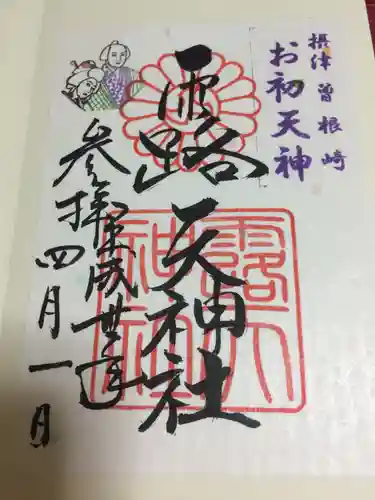 摂津 曽根崎
お初天神
露天神社
参拝平成丗年
四月一日
露天
神社